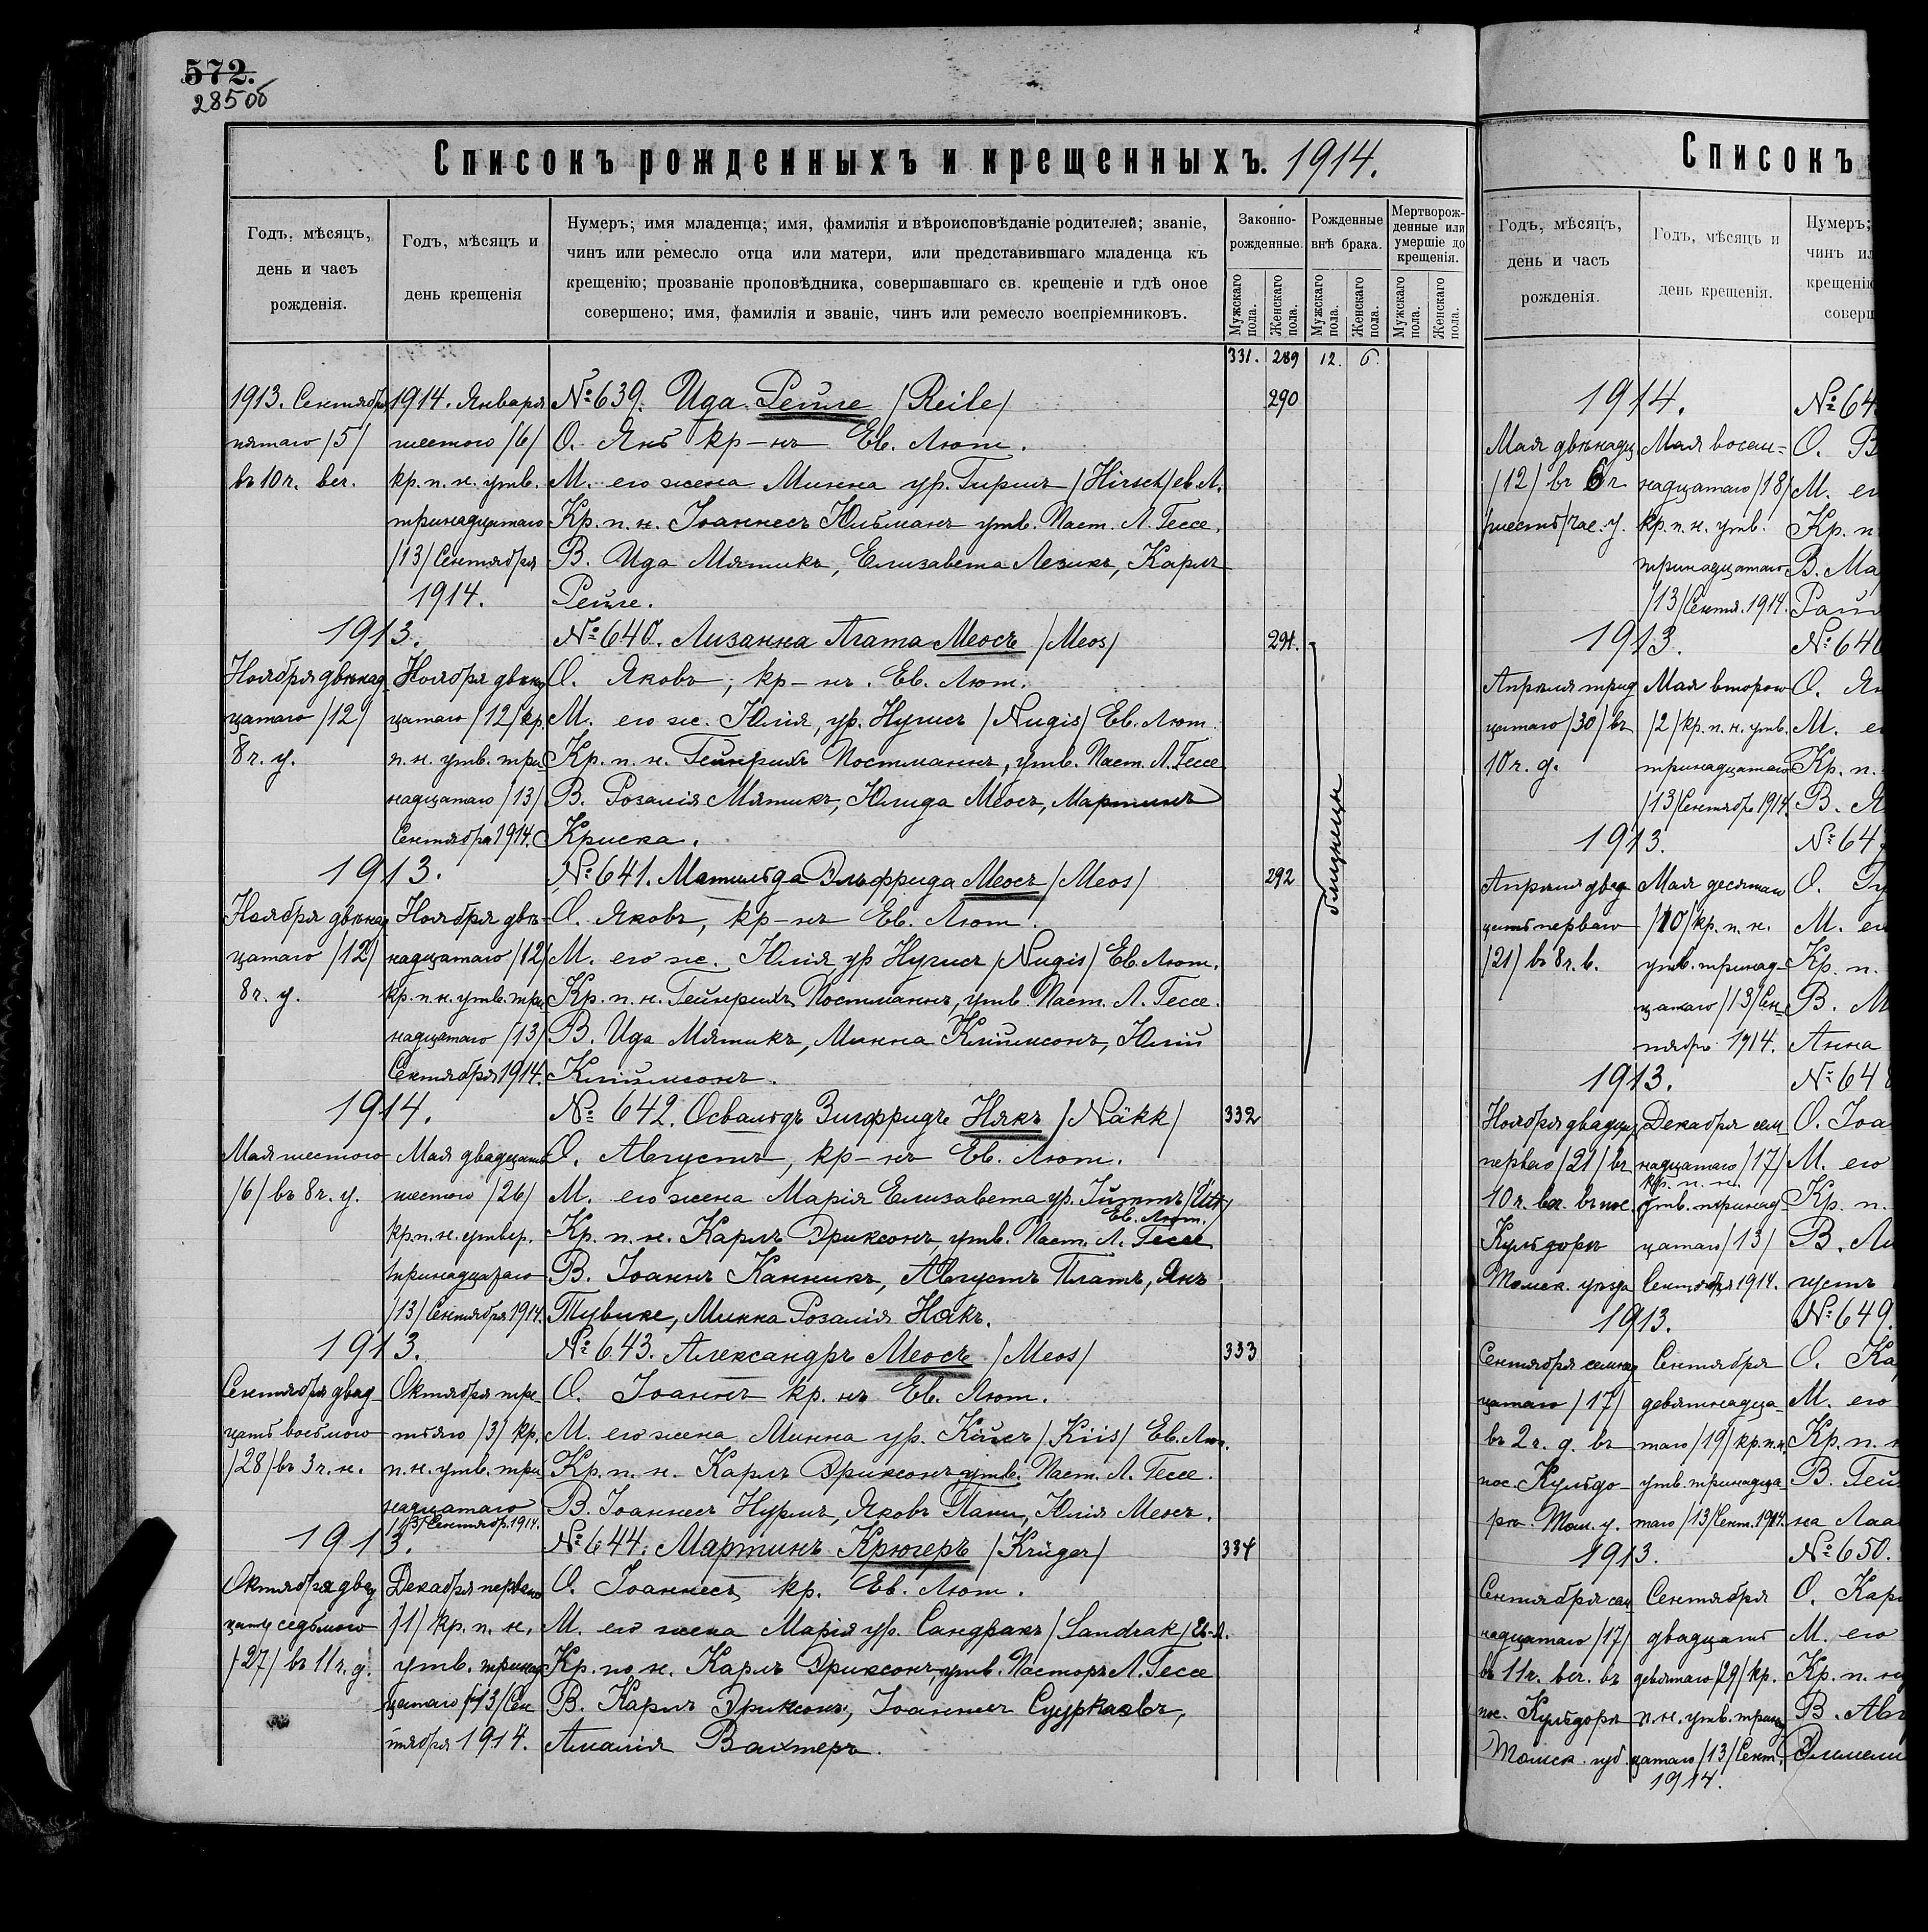 572.
285 об
Списокъ рожденныхъ и крещенныхъ. 1914.
Годъ, мѣсяцъ, день и часъ рожденія.
Годъ, мѣсяцъ и день крещенія
Нумеръ; имя младенца; имя, фамилія и вѣроисповѣданіе родителей; званіе,
чинъ или ремесло отца или матери, или представившаго младенца къ
крещенію; прозваніе проповѣдника, совершавшаго св. крещеніе и гдѣ оное
совершено; имя, фамилія и званіе, чинъ или ремесло воспріемниковъ.
Законно-рожденные.
Рожденные внѣ брака.
Мертворож-денные или умершіе до крещенія.
Мужскаго пола. Женскаго пола. Мужскаго пола. Женскаго пола. Мужскаго пола. Женскаго пола.
331. 289 12. 6.
1913. Сентября
пятаго /5/
въ 10 ч. веч.
1914. Января
шестого /6/
кр. п. н. утв.
тринадцатаго
/13/ Сентября
1914.
№ 639. Ида Рейле /Reile/ 290
О. Янъ кр-нъ Ев. Лют.
М. его жена Минна ур. Гиршъ /Hirsch/ ев. Л.
Кр. п. н. Іоаннесъ Юльманъ утв. Паст. Л. Гессе.
В. Ида Мятикъ, Елизавета Лезикъ, Карлъ
Рейле.
1913.
Ноября двѣнад
цатаго /12/
8 ч. у.
Ноября двѣнад
цатаго /12/ кр.
п. н. утв. три
надцатаго /13/
Сентября 1914.
№ 640. Лизанна Агата Меосъ /Meos/ 291.
О. Яковъ, кр-нъ. Ев. Лют.
М. его ж. Юлія, ур. Нугисъ /Nugis/ Ев. Лют.
Кр. п. н. Гейнрихъ Постманнъ, утв. Паст. Л. Гессе
В. Розалія Мятикъ, Юлида Меосъ, Мартинъ
Криска.
близнецы
1913.
Ноября двѣнад
цатаго /12/
8 ч. у.
Ноября двѣ-
надцатаго /12/
кр. п. н. утв. три
надцатаго /13/
Сентября 1914.
№ 641. Матильда Эльфрида Меосъ /Meos/ 292
О. Яковъ, кр-нъ Ев. Лют.
М. его ж. Юлія ур Нугисъ /Nugis/ Ев. Лют.
Кр. п. н. Гейнрихъ Постманнъ, утв. Паст. Л. Гессе.
В. Ида Мятикъ, Минна Клиймсонъ, Юлій
Клиймсонъ.
1914.
Мая шестого
/6/ въ 8 ч. у.
Мая двадцать
шестого /26/
кр. п. н. утвер.
тринадцатаго
/13/ Сентября 1914.
№ 642. Освальдъ Зигфридъ Някъ /Näkk/ 332
О. Августъ, кр-нъ Ев. Лют.
М. его жена Марія Елизавета ур.
Ев. Лют.
Кр. п. н. Карлъ Эриксонъ, утв. Паст. Л. Гессе
В. ІоаннъКанникъ, Августъ Платъ, Янъ
Тувике, Минна Розалія Някъ.
1913.
Сентября двад-
цать восьмого
/28/ въ 3 ч. н.
Октября тре-
тьяго /3/ кр.
п. н. утв. три
надцатаго
/13/ Сентябр. 1914.
№ 643. Александръ Меосъ /Meos/ 333
О. Іоаннъ кр. нъ Ев. Лют.
М. его жена Минна ур. Кійсъ /Kiis/ Ев. Лют.
Кр. п. н. Карлъ Эриксонъ утв. Паст. Л. Гессе.
В. Іоаннесъ Нурмъ, Яковъ Пани, Юлія Меосъ.
1913.
Октября двад
цать седьмого
/27/ въ 11 ч. д.
Декабря перваго
/1/ кр. п. н.
утв. тринад
цатаго /13/ Сен
тября 1914.
№ 644. Мартинъ Крюгеръ /Krüger/ 334
О. Іоаннесъ кр. Ев. Лют.
М. его жена Марія ур. Сандракъ /Sandrak/ Ев-Л.
Кр. по н. Карлъ Эриксонъ, утв. Пасторъ Л. Гессе
В. Карлъ Эриксонъ, Іоаннесъ Сууркаевъ,
Амалія Вахтеръ.
Списокъ
Годъ, мѣсяцъ, день и часъ рожденія.
Годъ, мѣсяцъ и день крещенія.
Нумеръ;
чинъ ил
крещенію
соверш
1914.
Мая двѣнадц.
/12/ въ 6 ч
/шесть/ час. у.
Мая восем-
надцатаго /18/
кр. п. н. утв.
тринадцатаго
/13/ Сентя. 1914.
№ 64
О. В
М. ег
Кр. п
В. Ма
Рай
1913.
Апрѣля трид
цатаго /30/ въ
10 ч. д.
Мая второго
/2/ кр. п. н. утв.
тринадцатаго
/13/ Сентябр. 1914.
№ 646
О. Ян
М. е
Кр. п.
В. Я
1913.
Апрѣля двад
цать перваго
/21/ въ 8 ч. в.
Мая десятаго
/10/ кр. п. н.
утв. тринад-
цатаго /13/ Сен-
тябр. 1914.
№ 647
О. Гу
М. ег
Кр. п.
В. М
Анна
1913.
Ноября двадцать
перваго /21/ въ
10 ч. веч. въ пос.
Кульдоръ
Томск. уѣзда
Декабря сем
надцатаго /17/
кр. п. н.
утв. тринад-
цатаго /13/
Сентября 1914.
№ 648
О. Іоа
М. его
Кр. п.
В. Ли
густъ
1913.
Сентября семнад
цатаго /17/
въ 2 ч. д. въ
пос. Кульдо-
ръ. Том. у.
Сентября
девятнадца-
таго /19/ кр. п. н.
утв. тринадца-
таго /13/ Сент. 1914.
№ 649.
О. Ка
М. его
Кр. п. н
В. Гей
на Лаа
1913.
Сентября сем
надцатаго /17/
въ 11 ч. веч. въ
пос. Кульдоръ
Томск. губ.
Сентября
двадцать
девятаго /29/ кр.
п. н. утв. тринад
цатаго /13/ Сент.
1914.
№ 650.
О. Кар
М. его
Кр. п. н
В. Авг